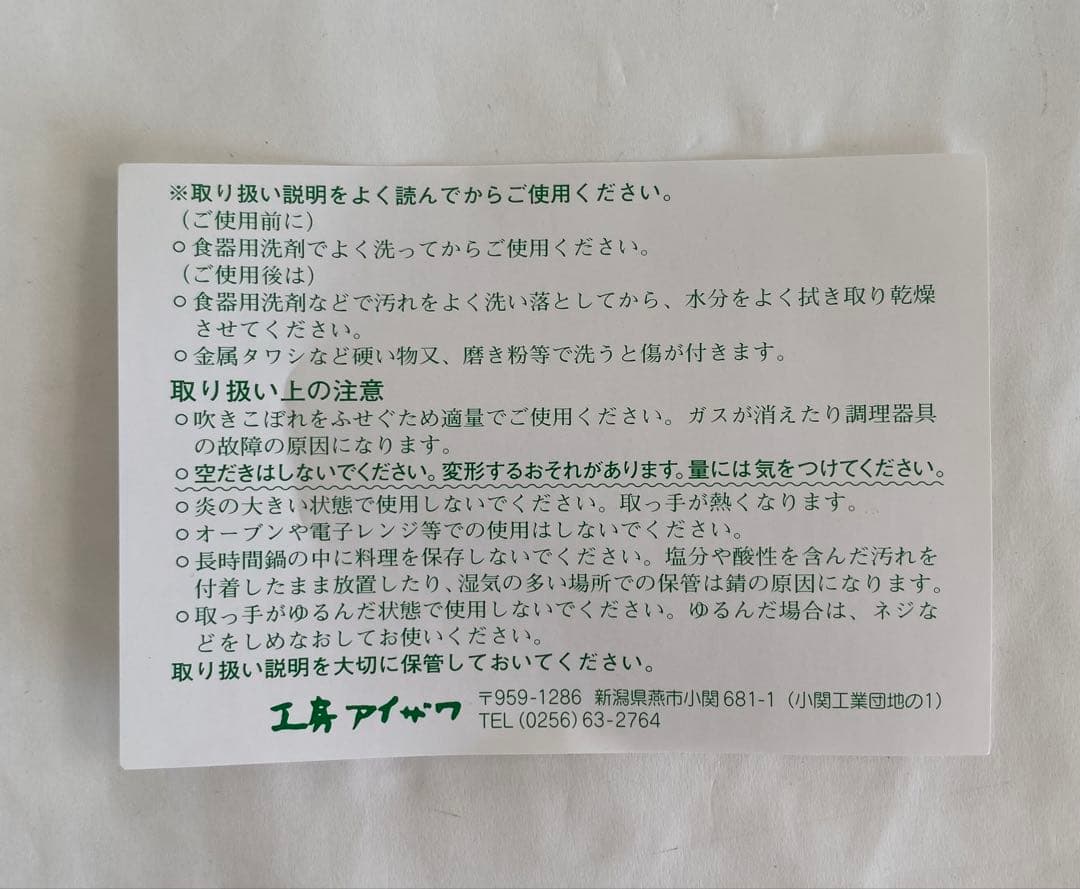 ※取り扱い説明をよく読んでからご使用ください。
(ご使用前に)
○食器用洗剤でよく洗ってからご使用ください。
(ご使用後は)
○食器用洗剤などで汚れをよく洗い落としてから、水分をよく拭き取り乾燥
させてください。
○金属タワシなど硬い物又、磨き粉等で洗うと傷が付きます。
取り扱い上の注意
○吹きこぼれをふせぐため適量でご使用ください。ガスが消えたり調理器具
の故障の原因になります。
○空だきはしないでください。変形するおそれがあります。量には気をつけてください。
○炎の大きい状態で使用しないでください。取っ手が熱くなります。
○オーブンや電子レンジ等での使用はしないでください。
○長時間鍋の中に料理を保存しないでください。塩分や酸性を含んだ汚れを
付着したまま放置したり、湿気の多い場所での保管は錆の原因になります。
○取っ手がゆるんだ状態で使用しないでください。ゆるんだ場合は、ネジな
どをしめなおしてお使いください。
取り扱い説明を大切に保管しておいてください。
工房 アイザワ 〒959-1286 新潟県燕市小関681-1(小関工業団地の1)
TEL(0256)63-2764